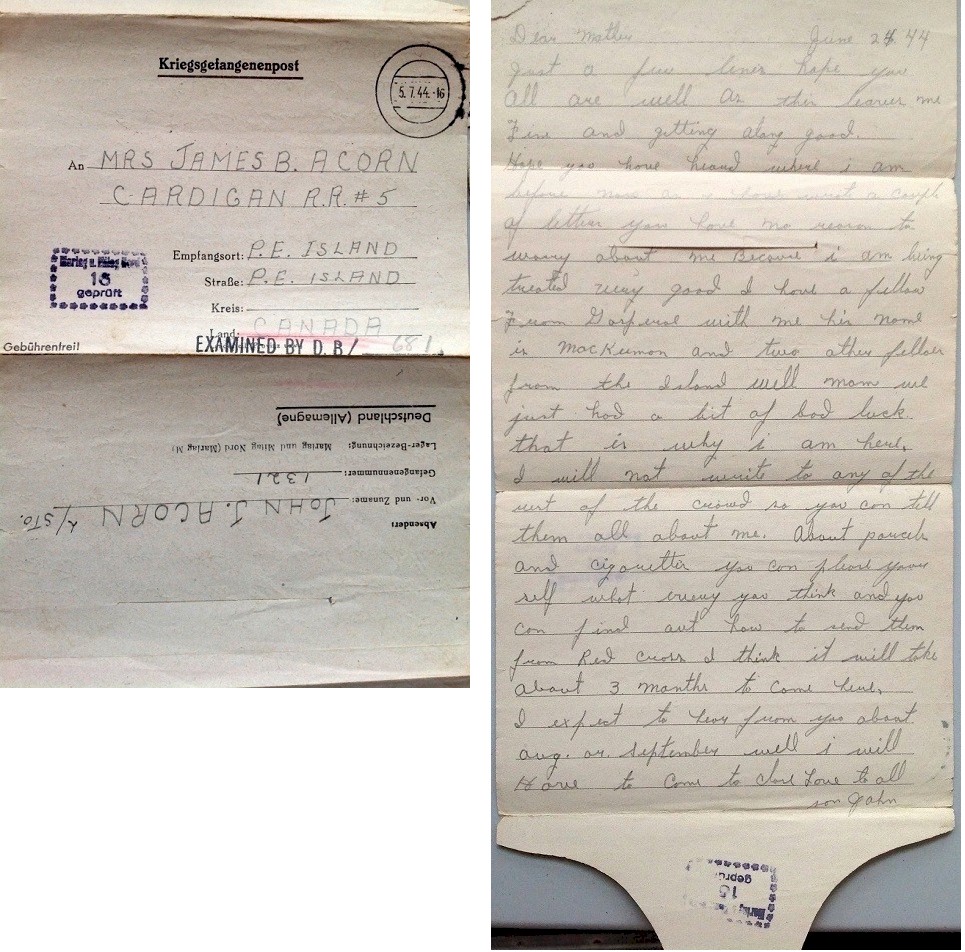 Kriegsgefangenenpost
5.7.44.-16
An MRS JAMES B. ACORN
CARDIGAN R.R. #5
Empfangsort: P.E. ISLAND
Straße: P.E. ISLAND
Kreis:
Land: CANADA
Marlag u. Milag Nord
15
geprüft
Gebührenfrei!
EXAMINED BY D.B/ 681
Deutschland (Allemagne)
Lager-Bezeichnung: Marlag und Milag Nord (Marlag M)
Gefangenennummer: 1321
Vor- und Zuname: JOHN J. ACORN /STO.
Absender:
Dear Mother June 24 44
Just a few lines hope you
all are well as this leaves me
Fine and getting along good.
Hope you have heard where i am
before now as i have writ a couple
of letters you have no reason to
worry about me Because i am being
treated very good I have a fellow
From with me his name
is MacKinnon and two other fellows
from the Island well mom we
just had a bit of bad luck
that is why i am here,
I will not write to any of the
rest of the crowd so you can tell
them all about me. About parcels
and cigarettes you can please your
self what every you think and you
can find out how to send them
from Red Cross I think it will take
about 3 months to come here,
I expect to hear from you about
aug. or. september well i will
Have to come to close Love to all
son John
15
geprüft